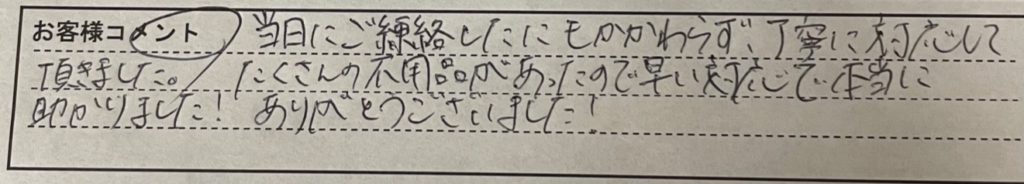 お客様コメント 当日にご連絡したにもかかわらず、丁寧に対応して
頂きました。たくさんの不用品があったので早い対応で本当に
助かりました! ありがとうございました!